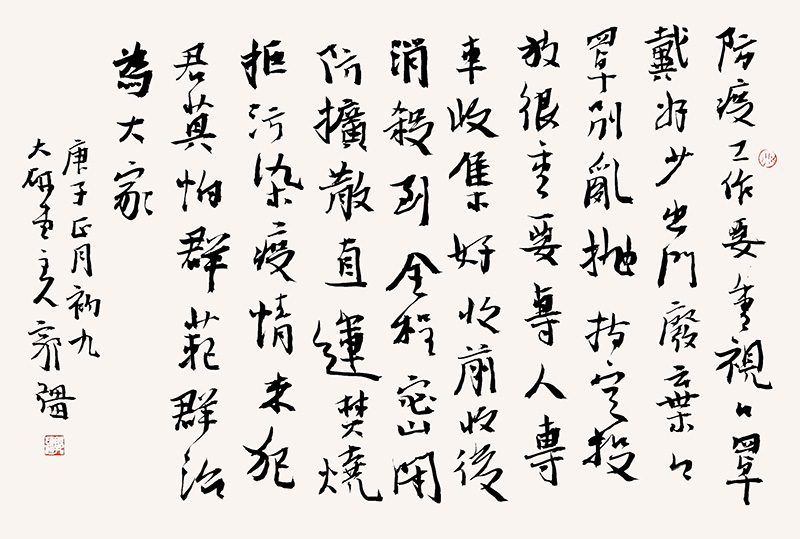 防疫工作要重視口罩
戴好少出門廢棄口
罩別亂拋指定投
放很重要專人專
車收集好收前收後
消殺到全程密閉
防擴散直運焚燒
拒污染疫情来犯
君莫怕群範群治
為大家
庚子正月初九
大研斋主人郭强